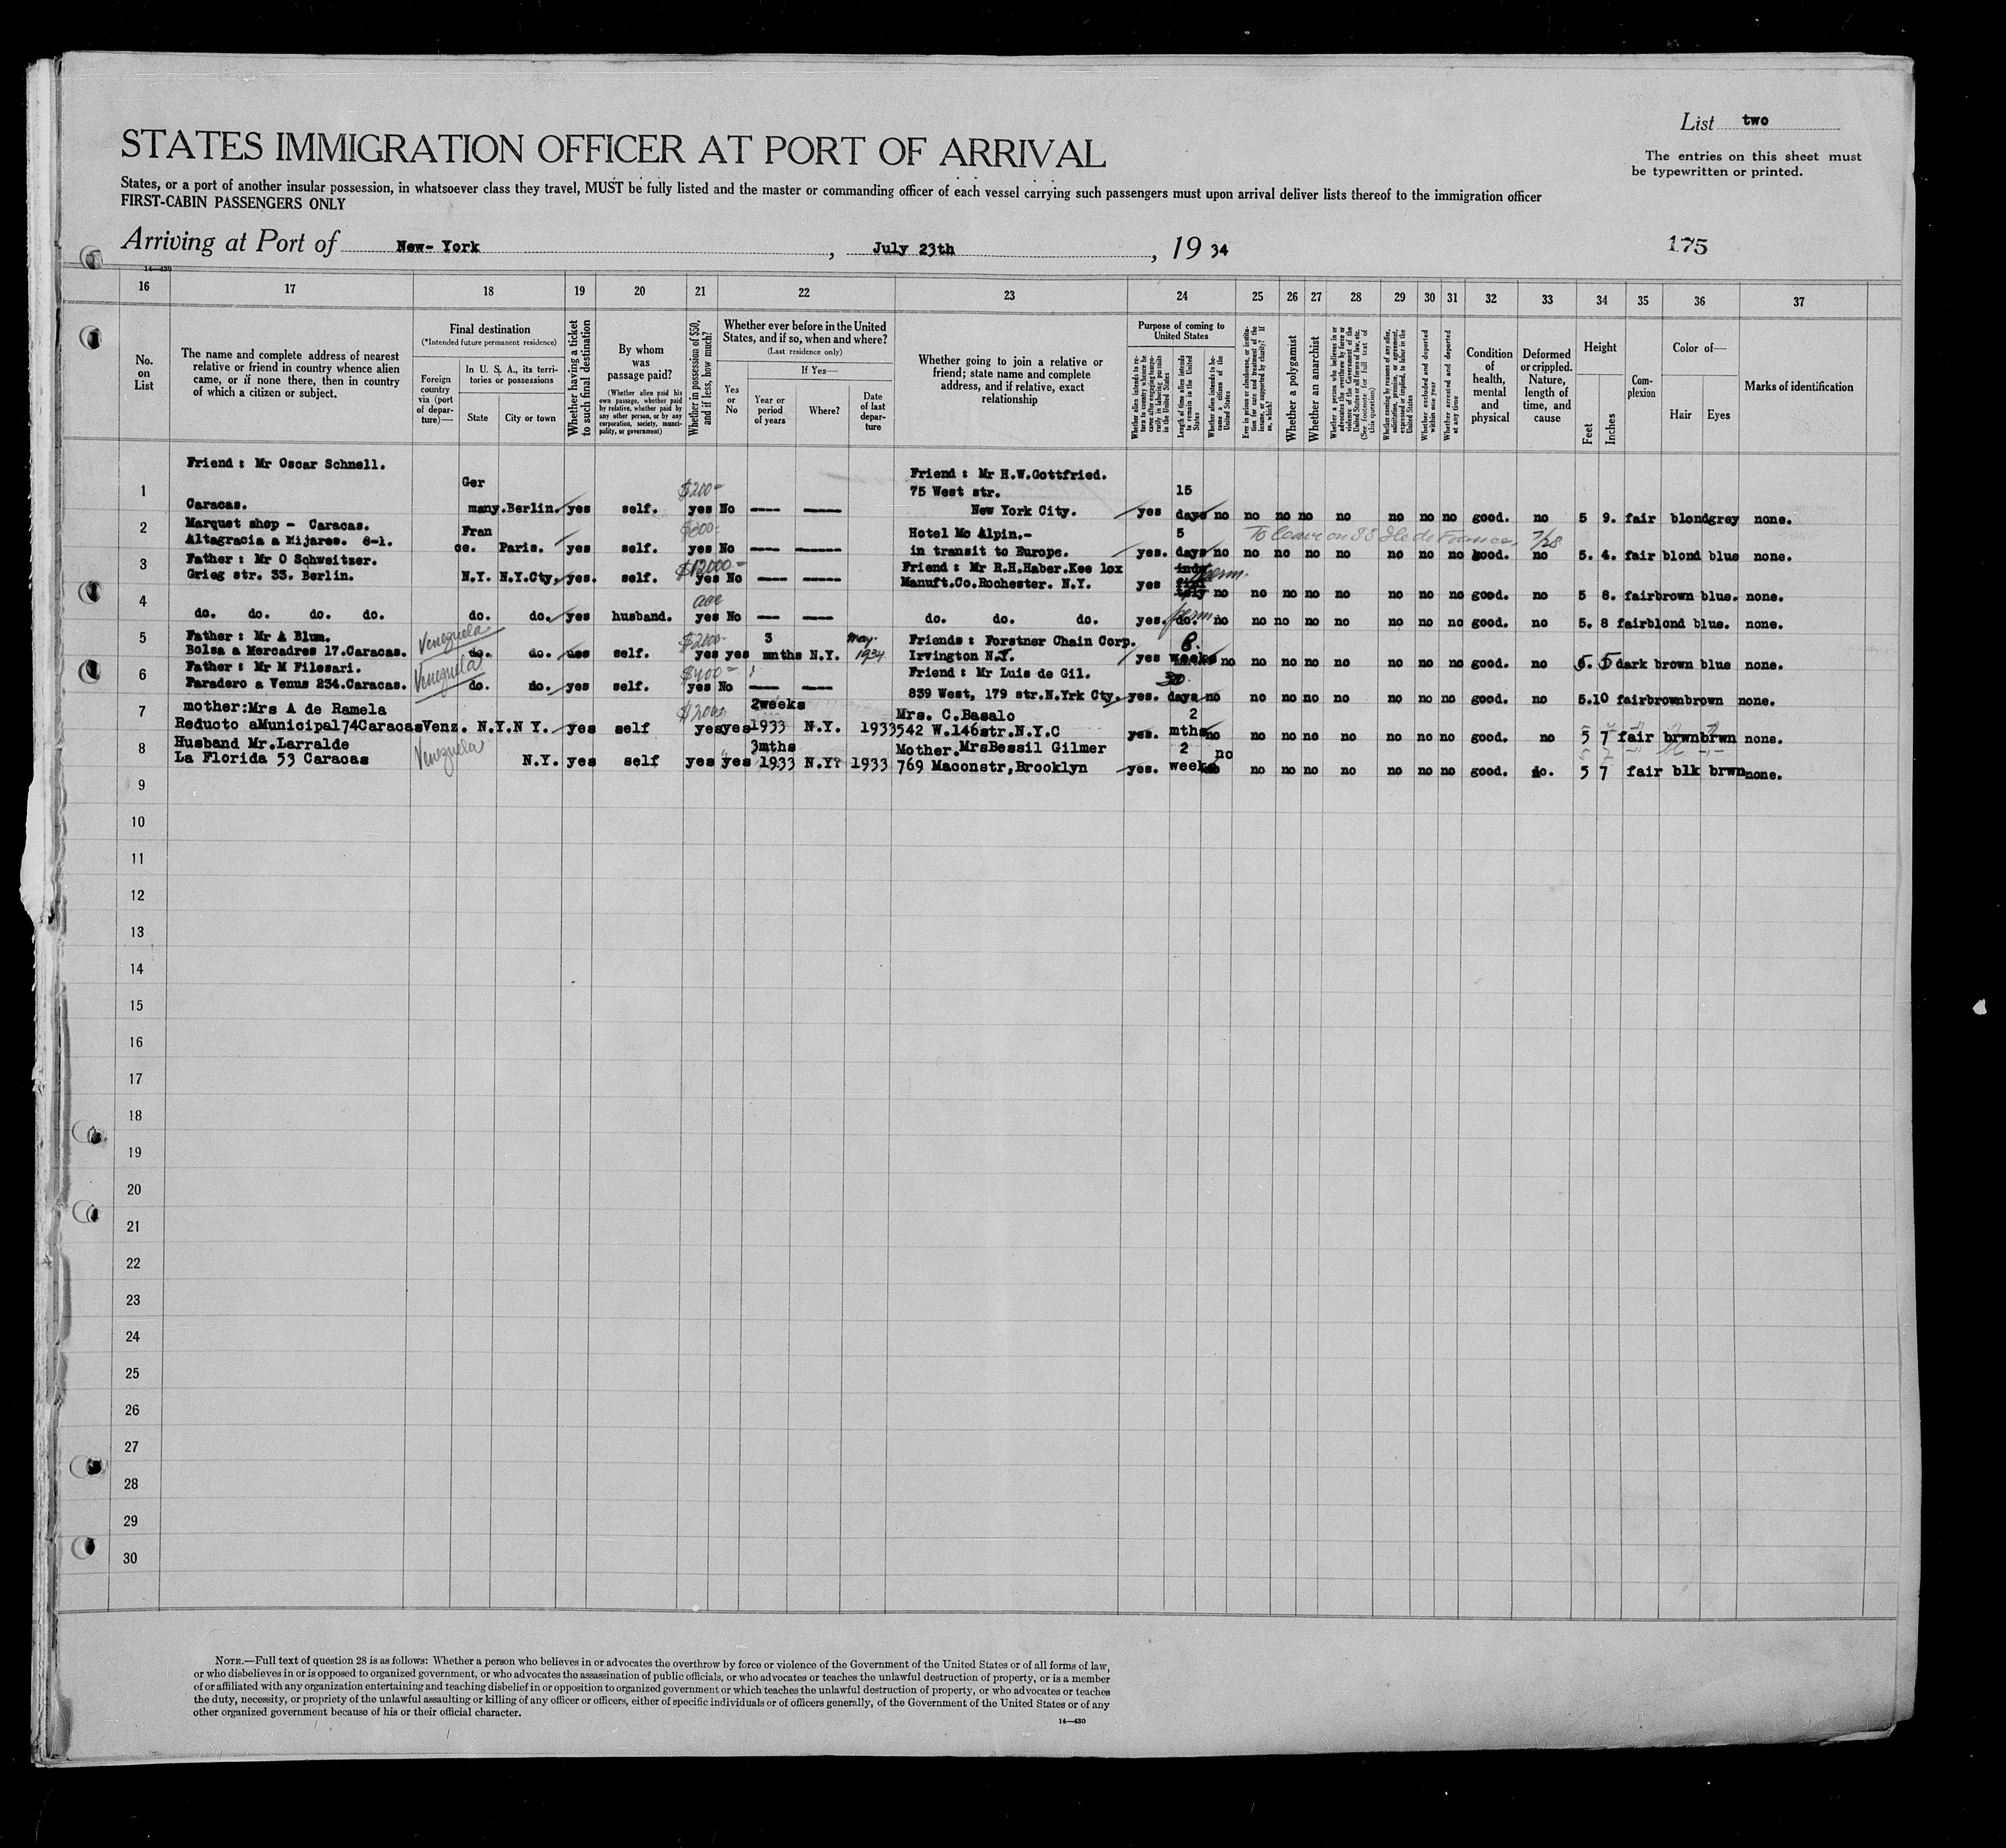 List two
STATES IMMIGRATION OFFICER AT PORT OF ARRIVAL
The entries on this sheet must
be typewritten or printed.
States, or a port of another insular possession, in whatsoever class they travel, MUST be fully listed and the master or commanding officer of each vessel carrying such passengers must upon arrival deliver lists thereof to the immigration officer
FIRST-CABIN PASSENGERS ONLY
Arriving at Port of New- York, July 23th, 19 34
175
14—430
16 17 18 19 20 21 22 23 24 25 26 27 28 29 30 31 32 33 34 35 36 37
No. on List
The name and complete address of nearest relative or friend in country whence alien came, or if none there, then in country of which a citizen or subject.
Final destination
(*Intended future permanent residence)
Foreign country via (port of depar-ture)—
In U. S. A., its terri-tories or possessions
State
City or town
Whether having a ticket to such final destination
By whom was passage paid?
(Whether alien paid his own passage, whether paid by relative, whether paid by any other person, or by any corporation, society, munici-pality, or government)
Whether in possession of $50, and if less, how much?
Whether ever before in the United States, and if so, when and where?
(Last residence only)
Yes or No
If Yes—
Year or period of years
Where?
Date of last depar-ture
Whether going to join a relative or friend; state name and complete address, and if relative, exact relationship
Purpose of coming to United States
Whether alien intends to re-turn to country whence he came after engaging tempo-rarily in laboring pursuits in the United States
Length of time alien intends to remain in the United States
Whether alien intends to be-come a citizen of the United States
Ever in prison or almshouse, or institu-tion for care and treatment of the insane, or supported by charity? If so, which?
Whether a polygamist
Whether an anarchist
Whether a person who believes in or advocates the overthrow by force or violence of the Government of the United States or all forms of law, etc. (See footnote for full text of this question)
Whether coming by reasons of any offer, solicitation, promise, or agreement, expressed or implied, to labor in the United States
Whether excluded and deported within one year
Whether arrested and deported at any time
Condition of health, mental and physical
Deformed or crippled. Nature, length of time, and cause
Height
Feet
Inches
Com-plexion
Color of—
Hair
Eyes
Marks of identification
1 Friend : Mr Oscar Schnell.
Caracas. Ger many. Berlin. yes self. $200- yes No Friend : Mr H.W.Gottfried.
75 West str.
New York City. yes 15 days no no no no no no no no good. no 5 9. fair blond grey none.
2 Marquet shop - Caracas.
Altagracia a Mijares. 8-1. Fran ce. Paris. yes self. yes No Hotel Mc Alpin.-
in transit to Europe. yes. 5 days no no no no no no no no good. no 5. 4. fair blond blue none.
To leave on SS Ile de France 7/28
3 Father : Mr O Schweitzer.
Grieg str. 33. Berlin. N.Y. N.Y.Cty, yes. self. $12000- yes No Friend : Mr R.H.Haber.Kee lox
Manuft.Co.Rochester. N.Y. yes perm. no no no no no no no no good. no 5 8. fair brown blue. none.
4 do. do. do. do. do. do. yes husband. yes No do. do. do. yes. do. perm no no no no no no no no good. no 5. 8 fair blond blue. none.
5 Father : Mr A Blum.
Bolsa a Mercadres 17.Caracas. Venezuela do. do. self. $200- yes yes 3 mnths N.Y. May. 1934 Friends : Forstner Chain Corp.
Irvington N.J. yes 8. weeks no no no no no no no no good. no 5. 5 dark brown blue none.
6 Father : Mr M Filesari.
Paradero a Venus 234.Caracas. Venezuela do. do. yes self. $400- yes No Friend : Mr Luis de Gil.
839 West, 179 str.N.Yrk Cty. yes. 30 days no no no no no no no no good. no 5.10 fair brown brown none.
7 mother:Mrs A de Ramela
Reducto aMunicipal74Caracas Venz. N.Y. N Y. yes self $200- yes yes 2weeks 1933 N.Y. 1933 Mrs. C.Basalo
542 W.146str.N.Y.C yes. 2 mths no no no no no no no no good. no 5 7 fair brwn brwn none.
8 Husband Mr.Larralde
La Florida 53 Caracas Venezuela N.Y. yes self yes yes 3mths 1933 N.Y? 1933 Mother.MrsBessil Gilmer
769 Maconstr,Brooklyn yes. 2 weeks no no no no no no no no good. do. 5 7 fair blk brwn none.
9
10
11
12
13
14
15
16
17
18
19
20
21
22
23
24
25
26
27
28
29
30
NOTE.—Full text of question 28 is as follows: Whether a person who believes in or advocates the overthrow by force or violence of the Government of the United States or of all forms of law,
or who disbelieves in or is opposed to organized government, or who advocates the assassination of public officials, or who advocates or teaches the unlawful destruction of property, or is a member
of or affiliated with any organization entertaining and teaching disbelief in or opposition to organized government or which teaches the unlawful destruction of property, or who advocates or teaches
the duty, necessity, or propriety of the unlawful assaulting or killing of any officer or officers, either of specific individuals or of officers generally, of the Government of the United States or of any
other organized government because of his or their official character.
14—430